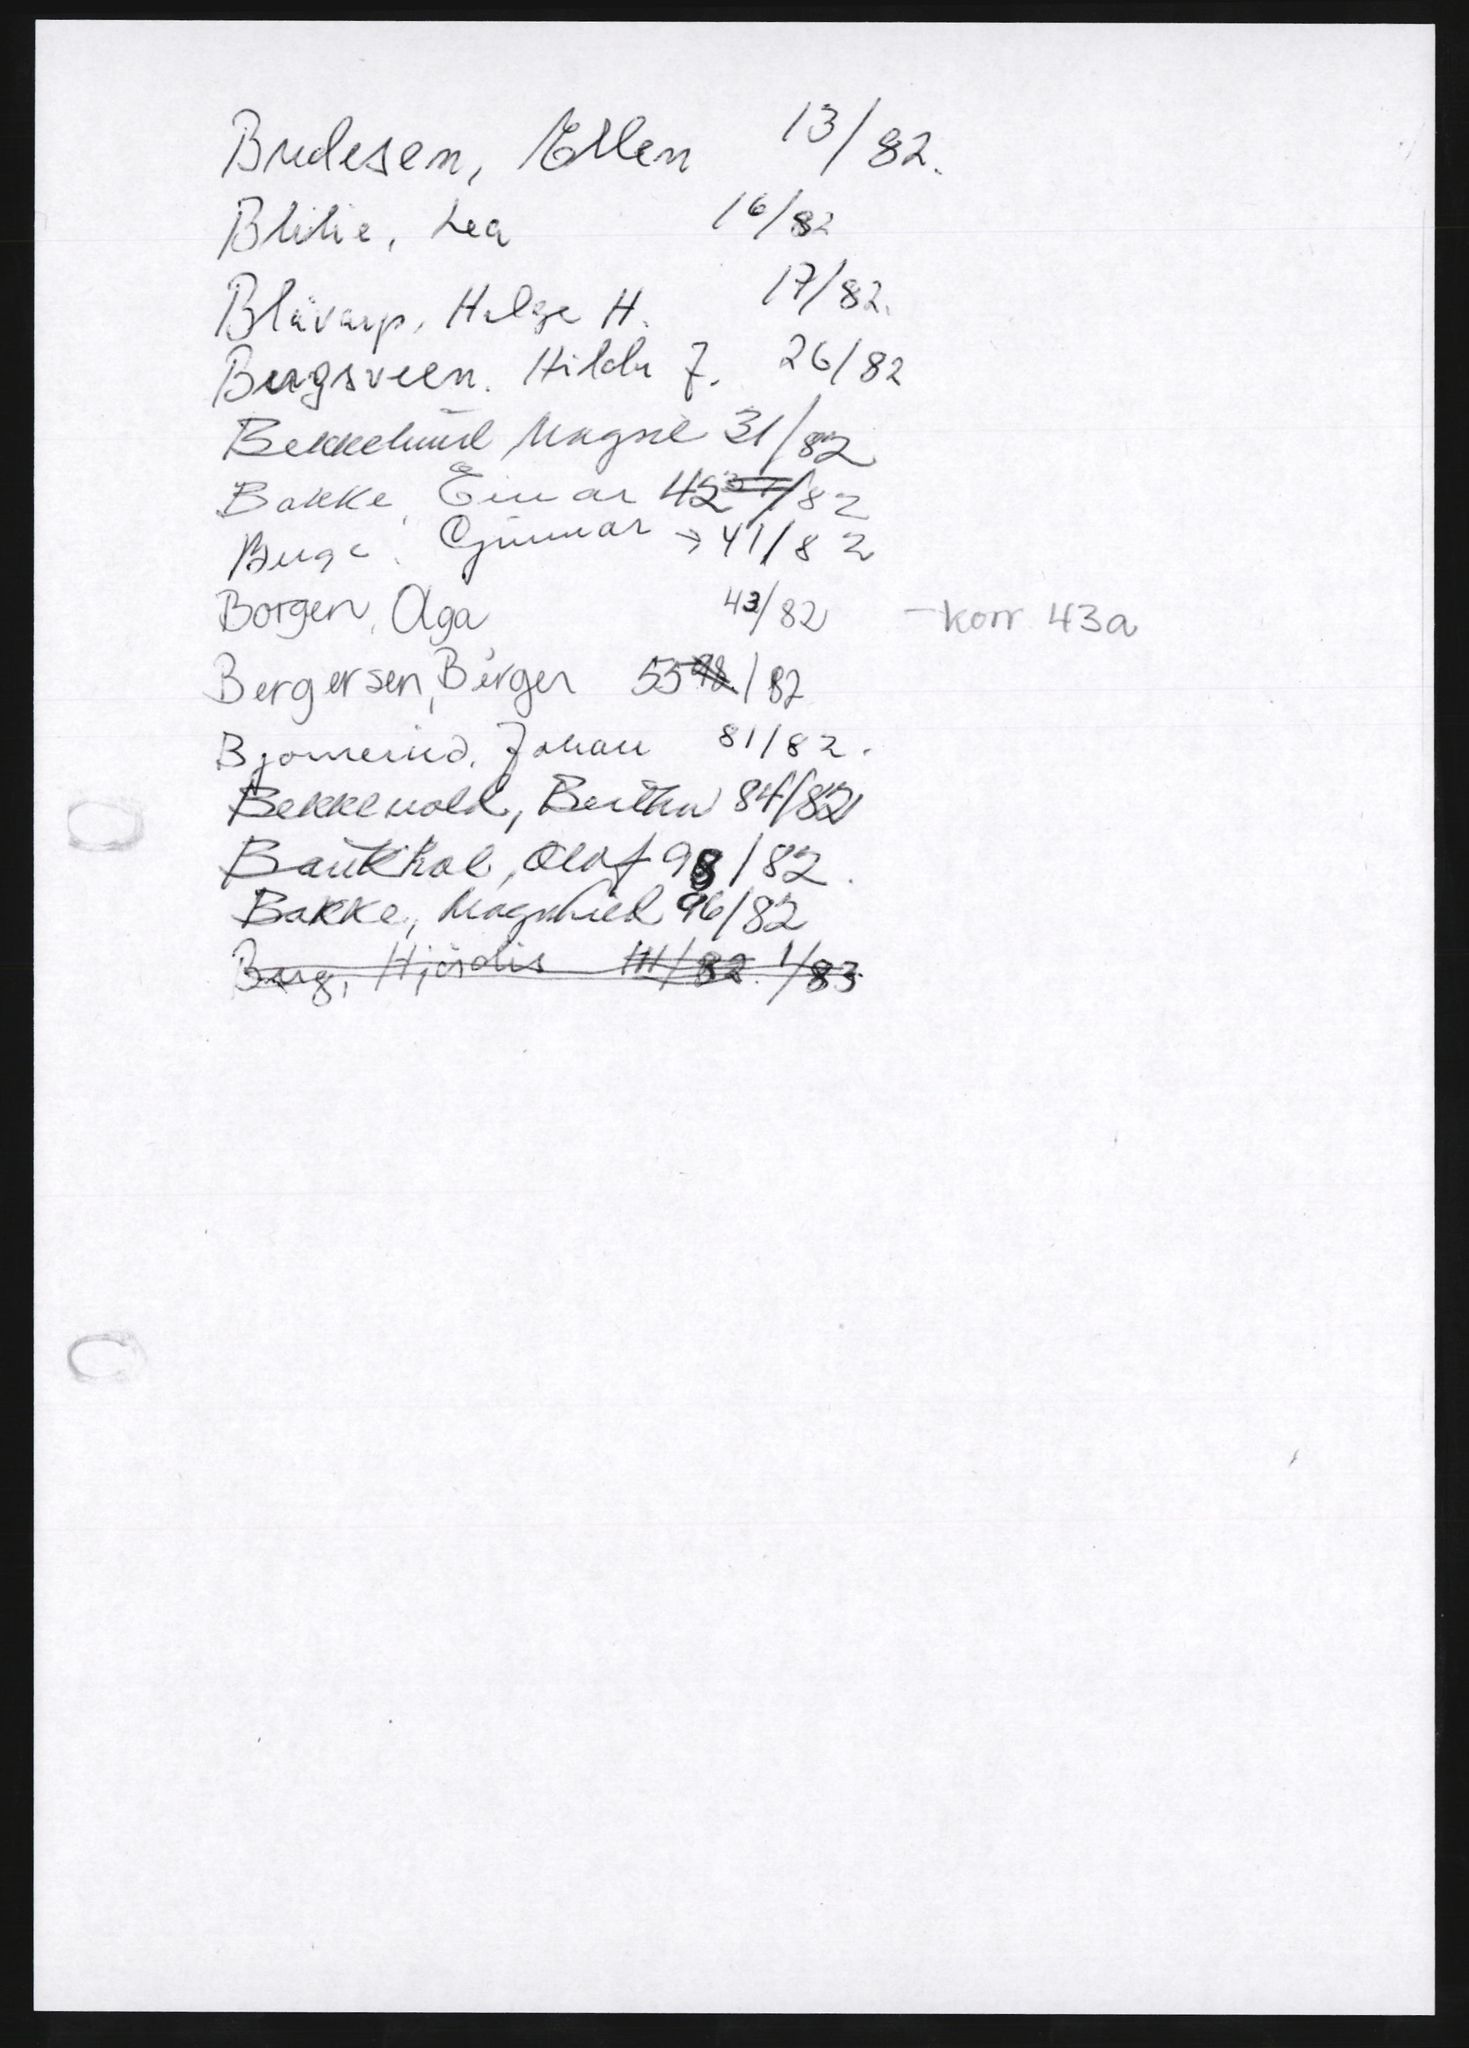 Bredesen, Ellen 13/82.
Blilie, Lea 16/82
Blåvarp, Helge H. 17/82.
Bergsveen. Hilda J. 26/82
Bekkelund Magne 31/82
Bakke, Einar 42/82
Berge, Gunnar → 41/82
Borgen, Olga 43/82 - korr 43a
Bergersen, Birger 55 98/82
Bjørnerud, Johan 81/82.
Bekkevold, Bertha 84/82
Olaf 98/82.
Bakke, Magnhild 96/82
Berg, Hjördis 111/82. 1/83.